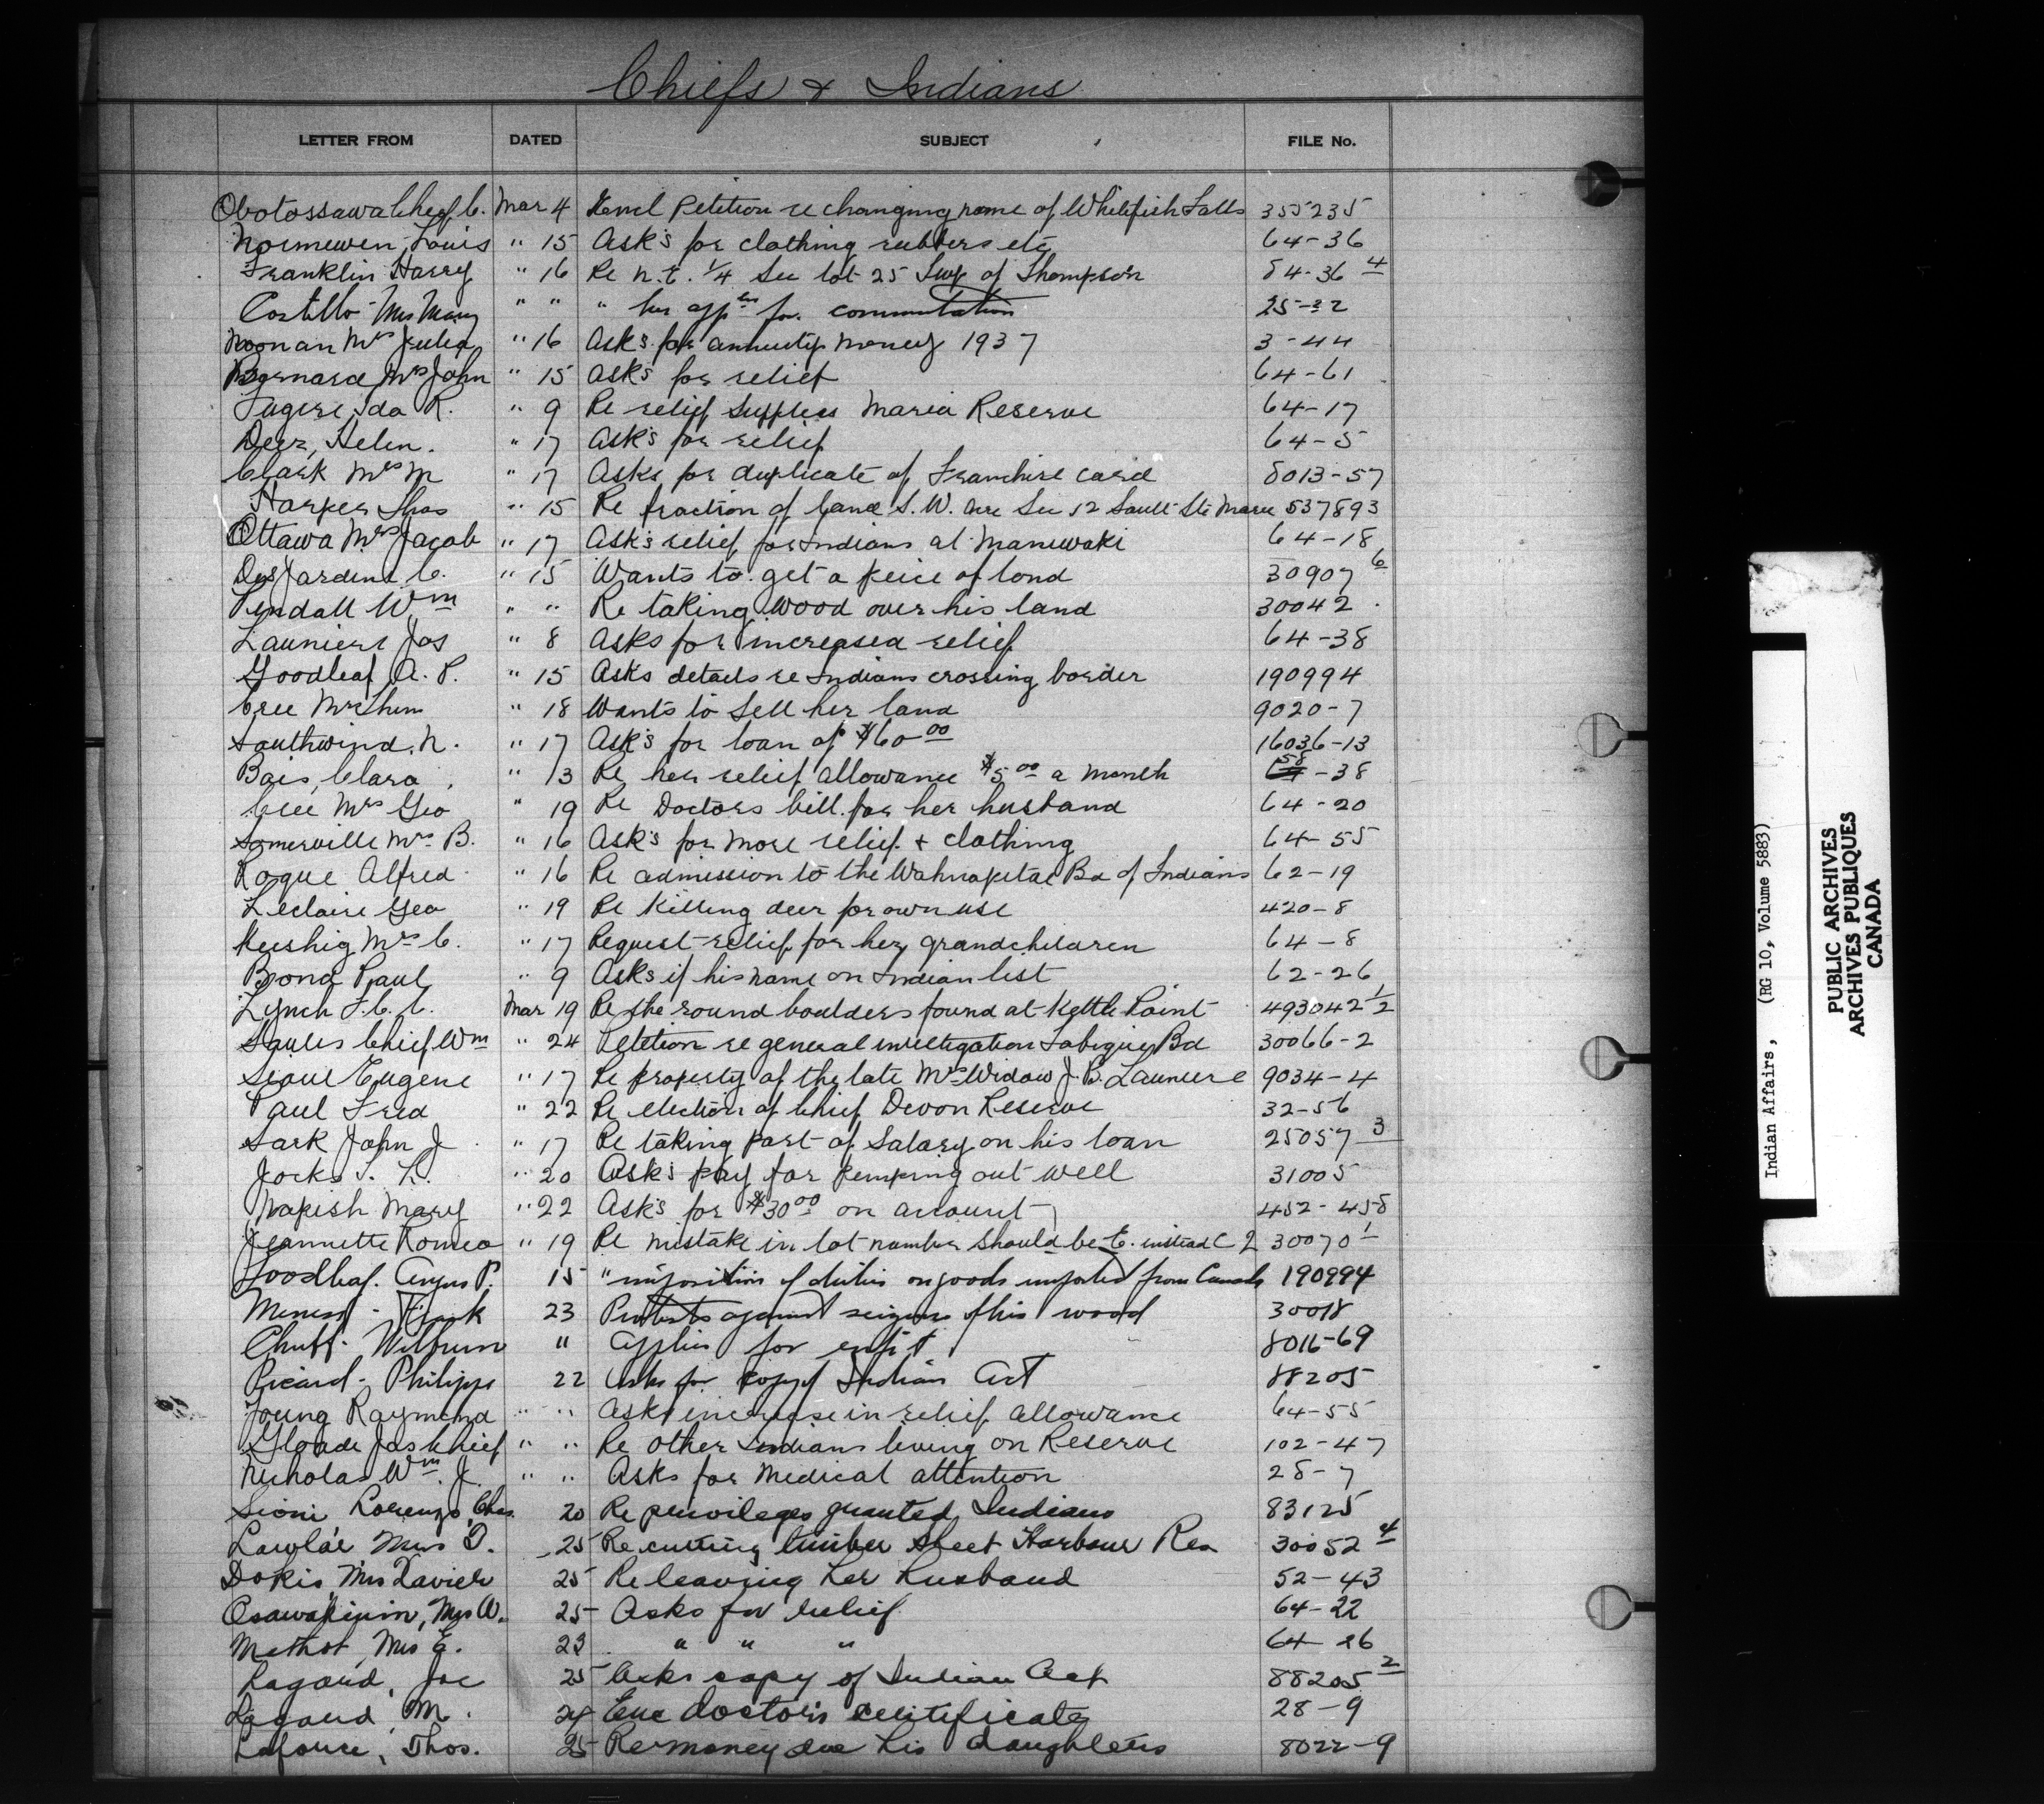 Chiefs & Indians
LETTER FROM DATED SUBJECT FILE No.
Obotossawa Chief C. Mar 4 Encl Petition re changing name of Whitefish Falls 355235
Louis " 15 Ask's for clothing rubbers etc 64-36
Franklin Harry " 16 Re N.E. 1/4 Sec lot 25 Twp of Thompson 84-36 4
Costello Mrs Mary " " " her appln for commutation 25-22
Noonan Mrs Julia " 16 Ask's for annuity money 1937 3-44
Bernard Mrs John " 15 Ask's for relief 64-61
Fugere Ida R. " 9 Re relief supplies Maria Reserve 64-17
Deer, Helen. " 17 Ask's for relief 64-5
Clark Mrs M " 17 Asks for duplicate of Franchise card 8013-57
Harper Thos " 15 Re fraction of land S.W. Sec 12 Sault Ste Marie 537893
Ottawa Mrs Jacob " 17 Ask's relief for Indians at Maniwaki 64-18
DesJardins C. " 15 Wants to get a peice of land 30907 6
Tendall Wm " " Re taking wood over his land 30042
Launiere Jos " 8 Asks for increased relief 64-38
Goodleaf A. P. " 15 Asks details re Indians crossing border 190994
Cree Mrs " 18 Wants to sell her land 9020-7
Southwind, N. " 17 Ask's for loan of $60 00 16036-13
Bais, Clara " 13 Re her relief allowance $5 00 a month 58-38
Cree Mrs Geo " 19 Re Doctors bill for her husband 64-20
Somerville Mrs B. " 16 Ask's for more relief & clothing 64-55
Roque Alfred " 16 Re admission to the Wahnapitae Bd of Indians 62-19
Leclaire Geo " 19 Re killing deer for own use 420-8
Keeshig Mrs C. " 17 Request relief for her grandchildren 64-8
Bond Paul " 9 Asks if his name on Indian list 62-26
Lynch F.C.C. Mar 19 Re the round boulders found at Kettle Point 493042 1/2
Saulis Chief Wm " 24 Petition re general investigation Tobique Bd 30066-2
Sioui Eugene " 17 Re property of the late Mrs Widow J.B. Launiere 9034-4
Paul Fred " 22 Re election of Chief Devon Reserve 32-56
Sark John J " 17 Re taking part of Salary on his loan 25057 3
Jocks T. L. " 20 Ask's pay for pumping out well 31005
Napish Mary " 22 Ask's for $30 00 on account 452-458
Jeannette Romeo " 19 Re mistake in lot number should be E. instead C 2 30070 1
Goodleaf. Angus P. 15 " imposition of duties on goods imported from Canada 190994
Meness - Frank 23 Protests against seizure of his wood 30018
Chuff - Wilburn " Applies for enft 8016-69
Picard - Philippe 22 Asks for copy of Indian Act 88205
Young Raymond " " Asks increase in relief allowance 64-55
Gloade Jas Chief " " Re other Indians living on Reserve 102-47
Nicholas Wm. J. " " Asks for medical attention 28-7
Sioui Lorenzo, Chas. 20 Re privileges granted Indians 83125
Mrs D. 25 Re cutting timber Sheet Harbour Res 30052 4
Dokis, Mrs Xavier 25 Re leaving her husband 52-43
Osawapinin, Mrs W. 25 Asks for relief 64-22
Methot, Mrs E. 23 " " " 64-26
Lagard, Joe 25 Asks copy of Indian Act 88205 2
Lagard, M. 24 Enc doctor's certificate 28-9
Laforce, Thos. 25 Re money due his daughters 8022-9
Indian Affairs, (RG 10, Volume 5883)
PUBLIC ARCHIVES
ARCHIVES PUBLIQUES
CANADA